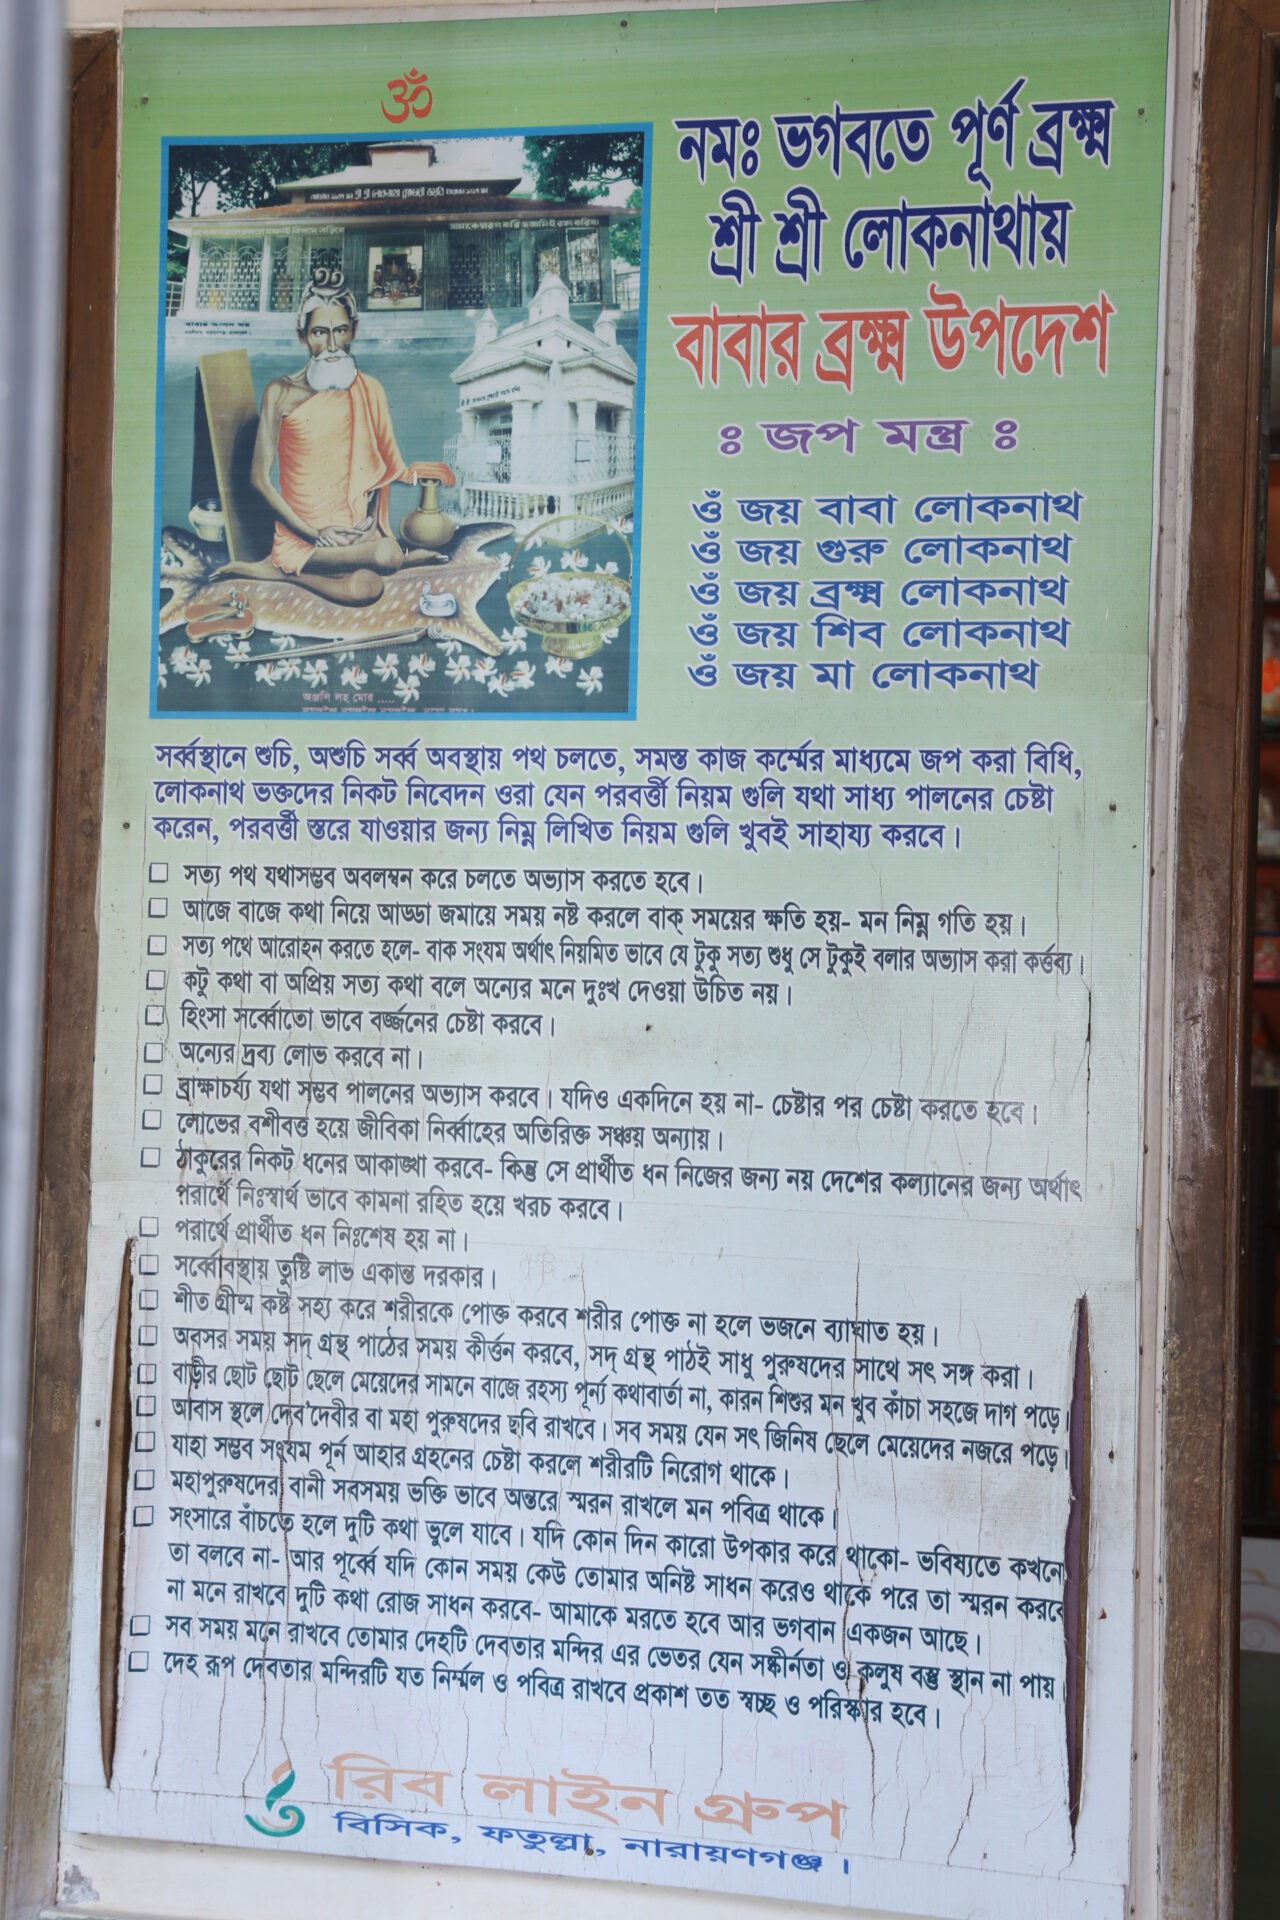 ॐ
নমঃ ভগবতে পূর্ণ ব্রহ্ম
শ্রী শ্রী লোকনাথায়
বাবার ব্রহ্ম উপদেশ
ঃ জপ মন্ত্র ঃ
ওঁ জয় বাবা লোকনাথ
ওঁ জয় গুরু লোকনাথ
ওঁ জয় ব্রহ্ম লোকনাথ
ওঁ জয় শিব লোকনাথ
ওঁ জয় মা লোকনাথ
অঞ্জলি লহ মোর .....
সর্ব্বস্থানে শুচি, অশুচি সর্ব্ব অবস্থায় পথ চলতে, সমস্ত কাজ কর্ম্মের মাধ্যমে জপ করা বিধি,
লোকনাথ ভক্তদের নিকট নিবেদন ওরা যেন পরবর্ত্তী নিয়ম গুলি যথা সাধ্য পালনের চেষ্টা
করেন, পরবর্ত্তী স্তরে যাওয়ার জন্য নিম্ন লিখিত নিয়ম গুলি খুবই সাহায্য করবে।
☐ সত্য পথ যথাসম্ভব অবলম্বন করে চলতে অভ্যাস করতে হবে।
☐ আজে বাজে কথা নিয়ে আড্ডা জমায়ে সময় নষ্ট করলে বাক্ সময়ের ক্ষতি হয়- মন নিম্ন গতি হয়।
☐ সত্য পথে আরোহন করতে হলে- বাক সংযম অর্থাৎ নিয়মিত ভাবে যে টুকু সত্য শুধু সে টুকুই বলার অভ্যাস করা কর্ত্তব্য।
☐ কটু কথা বা অপ্রিয় সত্য কথা বলে অন্যের মনে দুঃখ দেওয়া উচিত নয়।
☐ হিংসা সর্ব্বোতো ভাবে বর্জ্জনের চেষ্টা করবে।
☐ অন্যের দ্রব্য লোভ করবে না।
☐ ব্রাক্ষাচর্য্য যথা সম্ভব পালনের অভ্যাস করবে। যদিও একদিনে হয় না- চেষ্টার পর চেষ্টা করতে হবে।
☐ লোভের বশীবর্ত্ত হয়ে জীবিকা নির্ব্বাহের অতিরিক্ত সঞ্চয় অন্যায়।
☐ ঠাকুরের নিকট ধনের আকাঙ্খা করবে- কিন্তু সে প্রার্থীত ধন নিজের জন্য নয় দেশের কল্যানের জন্য অর্থাৎ
পরার্থে নিঃস্বার্থ ভাবে কামনা রহিত হয়ে খরচ করবে।
☐ পরার্থে প্রার্থীত ধন নিঃশেষ হয় না।
☐ সর্ব্বোবস্থায় তুষ্টি লাভ একান্ত দরকার।
☐ শীত গ্রীষ্ম কষ্ট সহ্য করে শরীরকে পোক্ত করবে শরীর পোক্ত না হলে ভজনে ব্যাঘাত হয়।
☐ অবসর সময় সদ্ গ্রন্থ পাঠের সময় কীর্ত্তন করবে, সদ্ গ্রন্থ পাঠই সাধু পুরুষদের সাথে সৎ সঙ্গ করা।
☐ বাড়ীর ছোট ছোট ছেলে মেয়েদের সামনে বাজে রহস্য পূর্ন্য কথাবার্তা না, কারন শিশুর মন খুব কাঁচা সহজে দাগ পড়ে।
☐ আবাস স্থলে দেব'দেবীর বা মহা পুরুষদের ছবি রাখবে। সব সময় যেন সৎ জিনিষ ছেলে মেয়েদের নজরে পড়ে।
☐ যাহা সম্ভব সংযম পূর্ন আহার গ্রহনের চেষ্টা করলে শরীরটি নিরোগ থাকে।
☐ মহাপুরুষদের বানী সবসময় ভক্তি ভাবে অন্তরে স্মরন রাখলে মন পবিত্র থাকে।
☐ সংসারে বাঁচতে হলে দুটি কথা ভুলে যাবে। যদি কোন দিন কারো উপকার করে থাকো- ভবিষ্যতে কখনো
তা বলবে না- আর পূর্ব্বে যদি কোন সময় কেউ তোমার অনিষ্ট সাধন করেও থাকে পরে তা স্মরন করবে
না মনে রাখবে দুটি কথা রোজ সাধন করবে- আমাকে মরতে হবে আর ভগবান একজন আছে।
☐ সব সময় মনে রাখবে তোমার দেহটি দেবতার মন্দির এর ভেতর যেন সঙ্কীর্নতা ও কলুষ বস্তু স্থান না পায়।
☐ দেহ রূপ দেবতার মন্দিরটি যত নির্ম্মল ও পবিত্র রাখবে প্রকাশ তত স্বচ্ছ ও পরিস্কার হবে।
রিব লাইন গ্রুপ
বিসিক, ফতুল্লা, নারায়ণগঞ্জ।